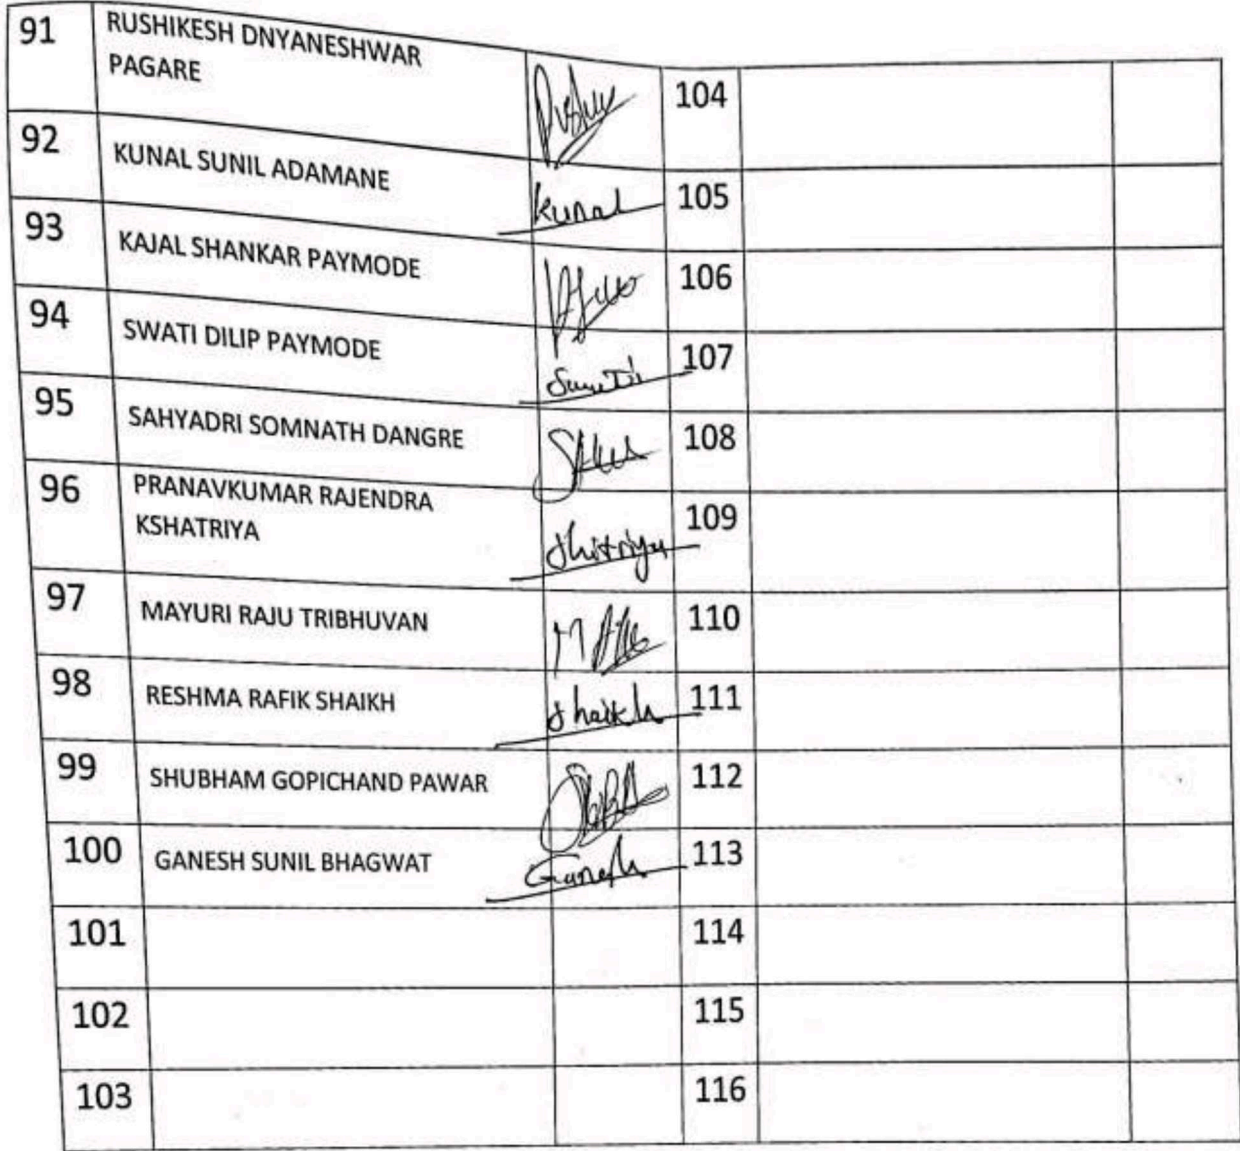 91 RUSHIKESH DNYANESHWAR
PAGARE
104
92 KUNAL SUNIL ADAMANE Kunal 105
93 KAJAL SHANKAR PAYMODE 106
94 SWATI DILIP PAYMODE 107
95 SAHYADRI SOMNATH DANGRE 108
96 PRANAVKUMAR RAJENDRA
KSHATRIYA
109
97 MAYURI RAJU TRIBHUVAN 110
98 RESHMA RAFIK SHAIKH Shaikh 111
99 SHUBHAM GOPICHAND PAWAR 112
100 GANESH SUNIL BHAGWAT Ganesh 113
101 114
102 115
103 116